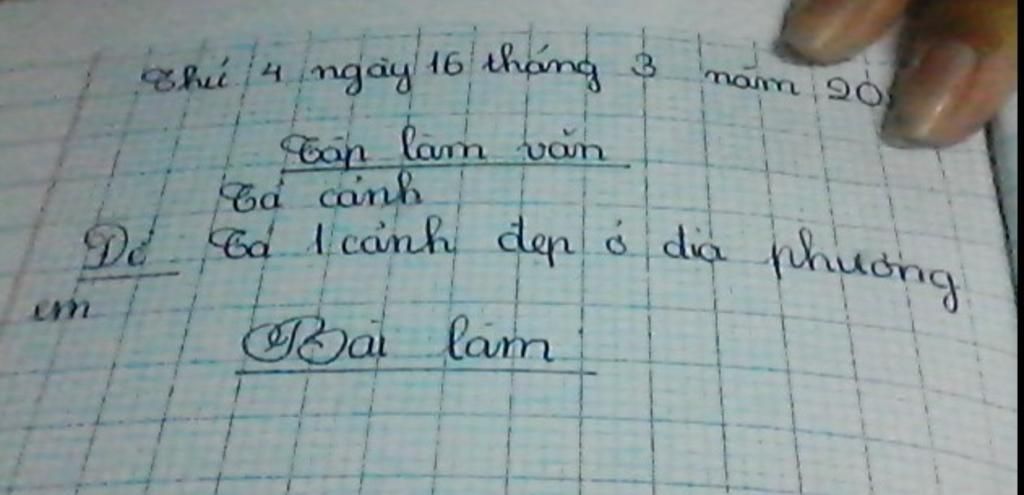 Thứ 4 ngày 16 tháng 3 năm 20
Tập làm văn
Tả cảnh
Đề Tả 1 cảnh đẹp ở địa phương
em
Bài làm